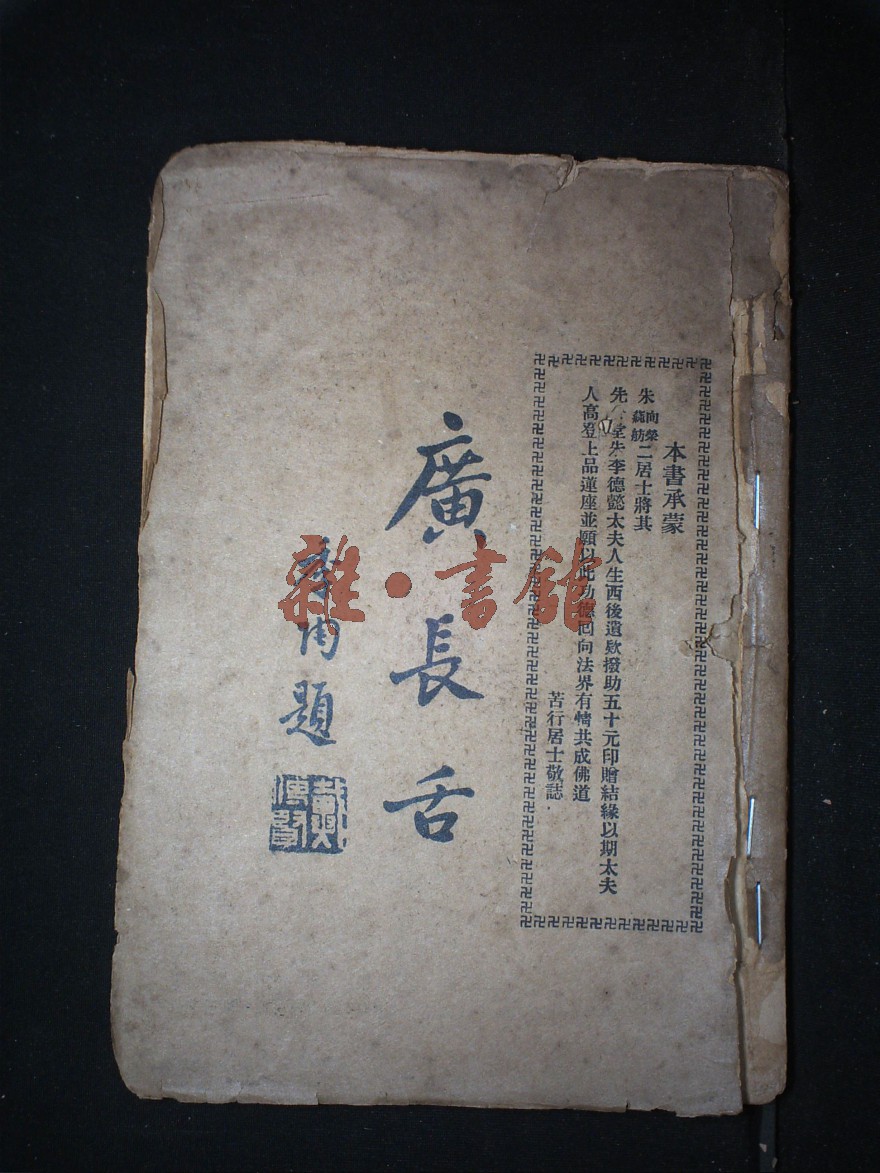 本書承蒙
朱向榮蘅舫二居士將其
先 堂朱李德懿太夫人生西後遺欵撥助五十元印贈結緣以期太夫
人高登上品蓮座並願以此功德囘向法界有情共成佛道
苦行居士敬誌
廣長舌
季陶題
雜·書館